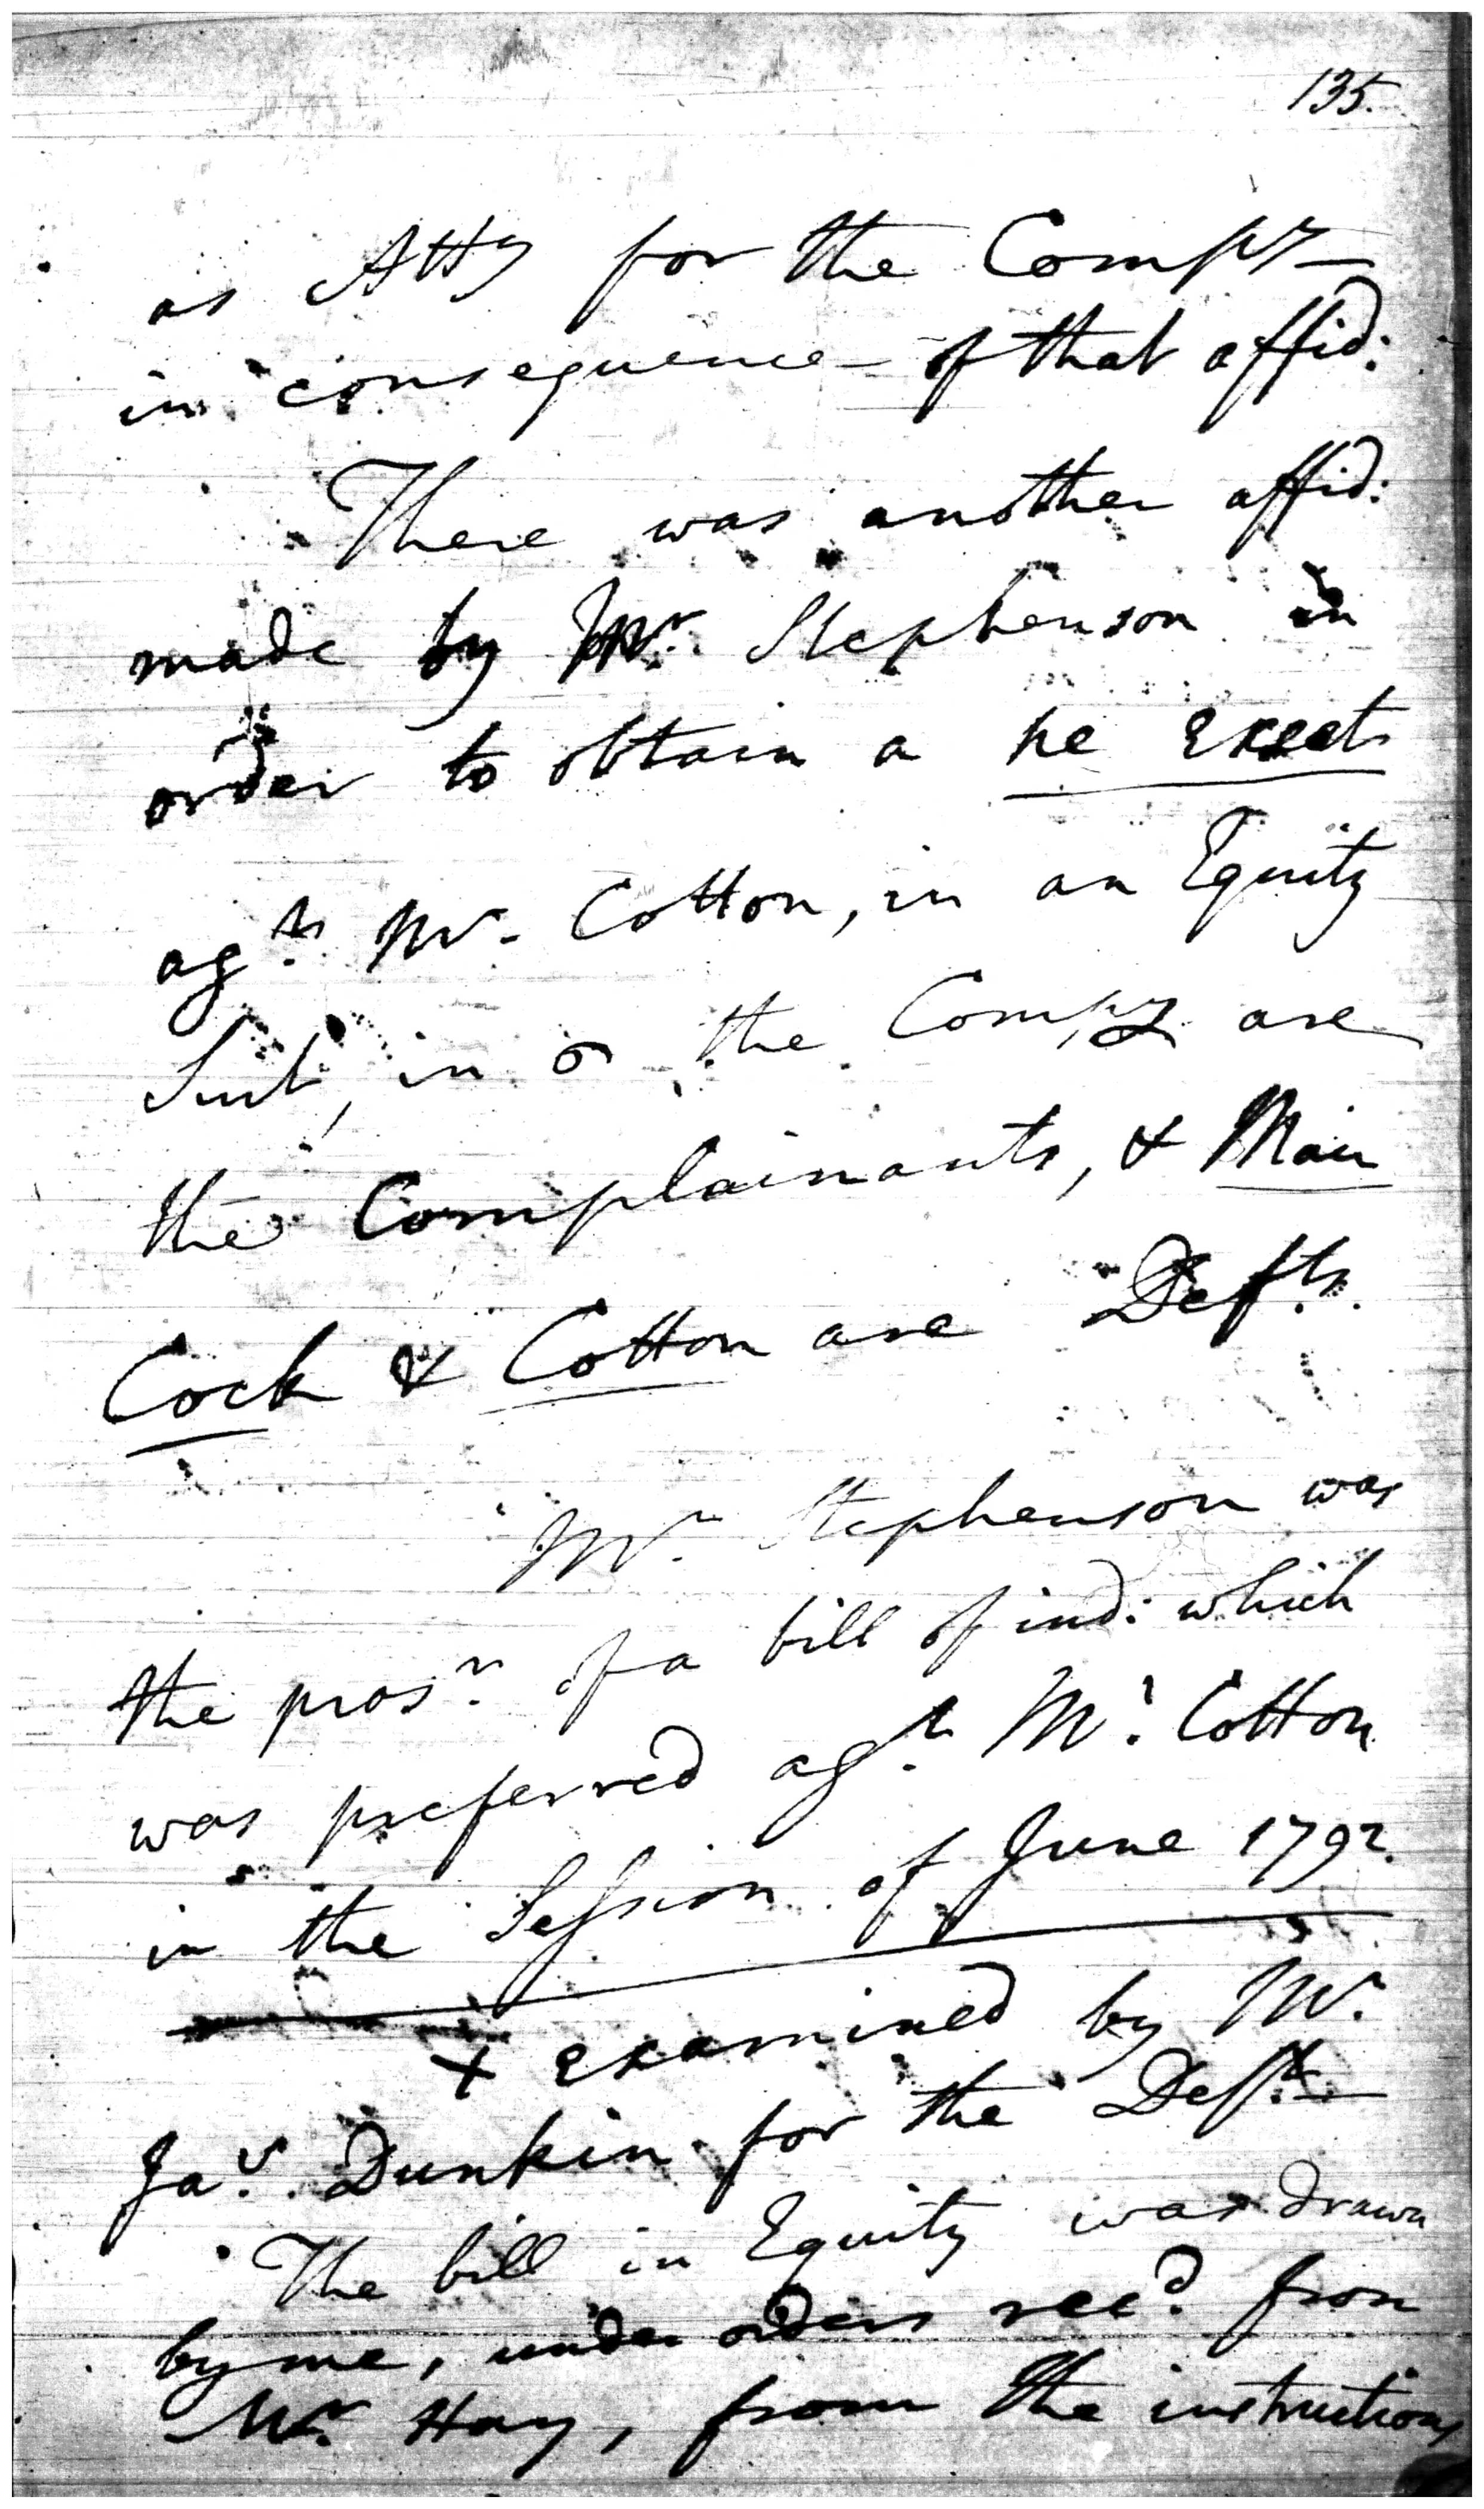 135.
as Atty for the Compy
in consequence of that affid:
There was another affid:
made by Mr. Stephenson in
order to obtain a ne exeat
agst. Mr. Cotton, in an Equity
Suit, in the Compy are
the Complainants, &
Cock & Cotton are Defts.
Mr. Stephenson was
the prosr. of a bill of ind: which
was preferred agst. Mr. Cotton
in the Session of June 1792.
x examined by Mr.
Jas. Dunkin for the Deft.
The bill in Equity was drawn
by me, under orders recd. from
Mr. Hay, from the instructions